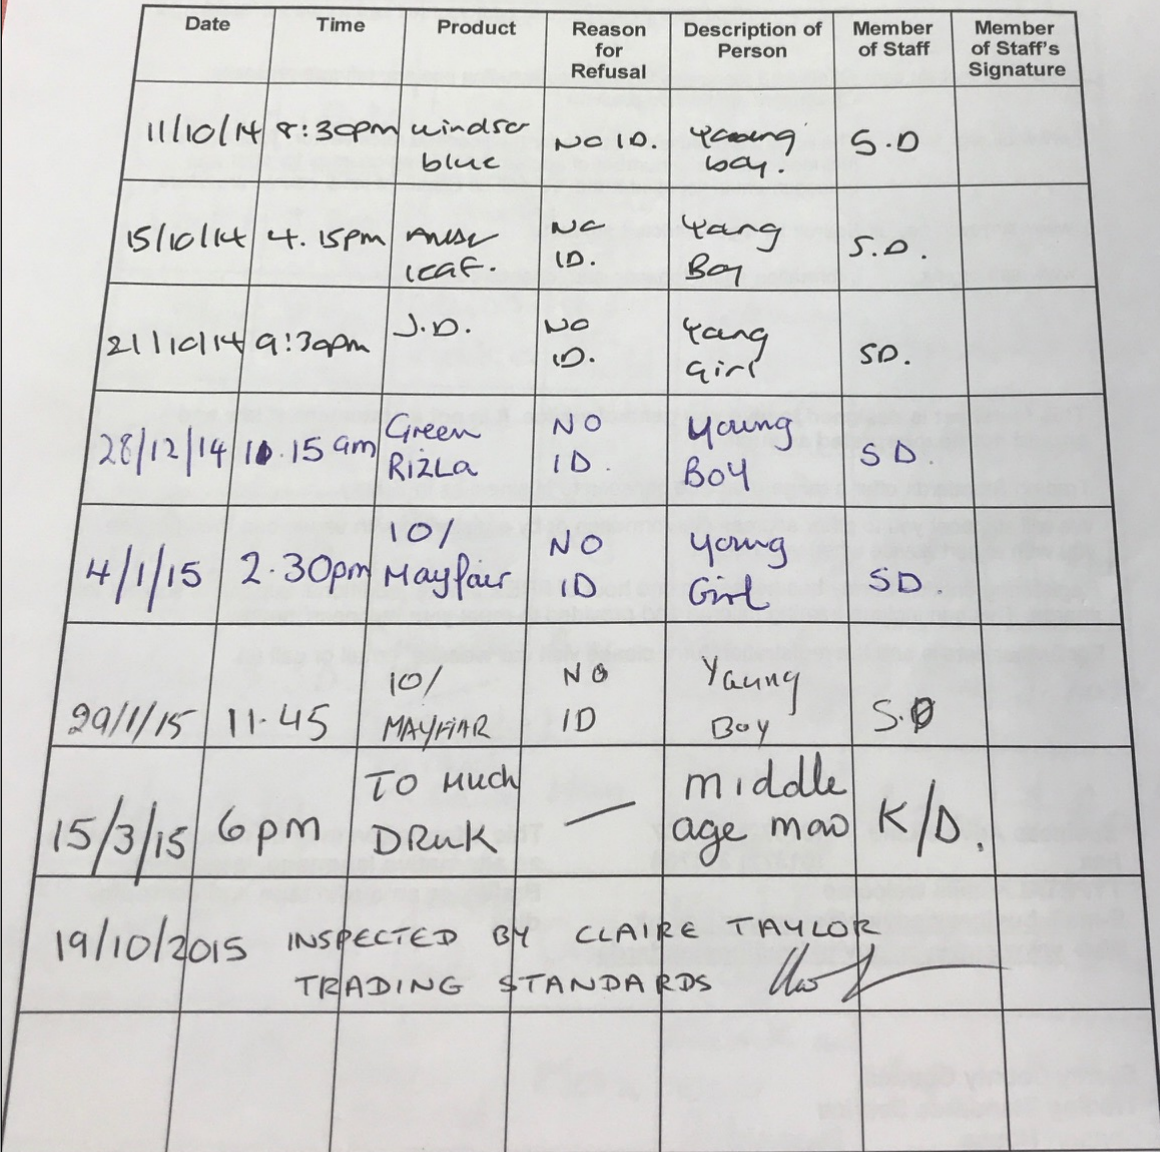 Date Time Product Reason for Refusal Description of Person Member of Staff Member of Staff's Signature
11/10/14 8:30pm windso blue NO ID. Young boy. S.D
15/10/14 4.15pm leaf. NO ID. Yong Boy S.D.
21/10/14 9:30pm J.D. NO ID. Yong Girl SD.
28/12/14 10.15 am Green RIZLA NO ID. Young BOY SD.
4/1/15 2.30pm 10/ Mayfair NO ID Young Girl SD.
29/1/15 11.45 10/ MAYFIAR NO ID Young Boy S.D
15/3/15 6pm TO Much DRUK — middle age man K/D.
19/10/2015 INSPECTED BY CLAIRE TAYLOR
TRADING STANDARDS